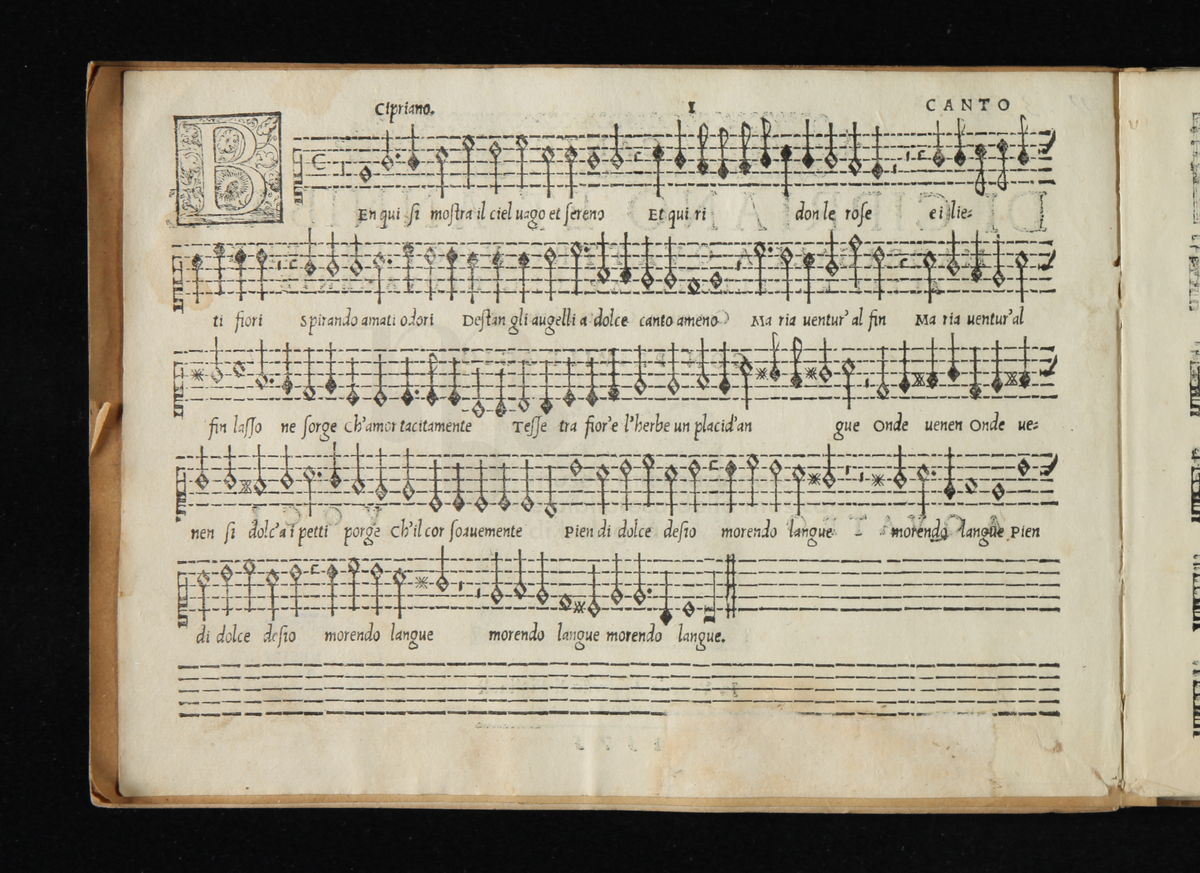 Cipriano. I CANTO
BEn qui si mostra il ciel uago et sereno Et qui ri don le rose e i lie-
ti fiori Spirando amati odori Destan gli augelli a dolce canto ameno Ma ria uentur' al fin Ma ria uentur' al
fin lasso ne sorge Ch'amor tacitamente Tesse tra fior'e l'herbe un placid'an gue Onde uenen Onde ue-
nen si dolc'a i petti porge Ch'il cor soauemente Pien di dolce desio morendo langue morendo langue Pien
di dolce desio morendo langue morendo langue morendo langue.